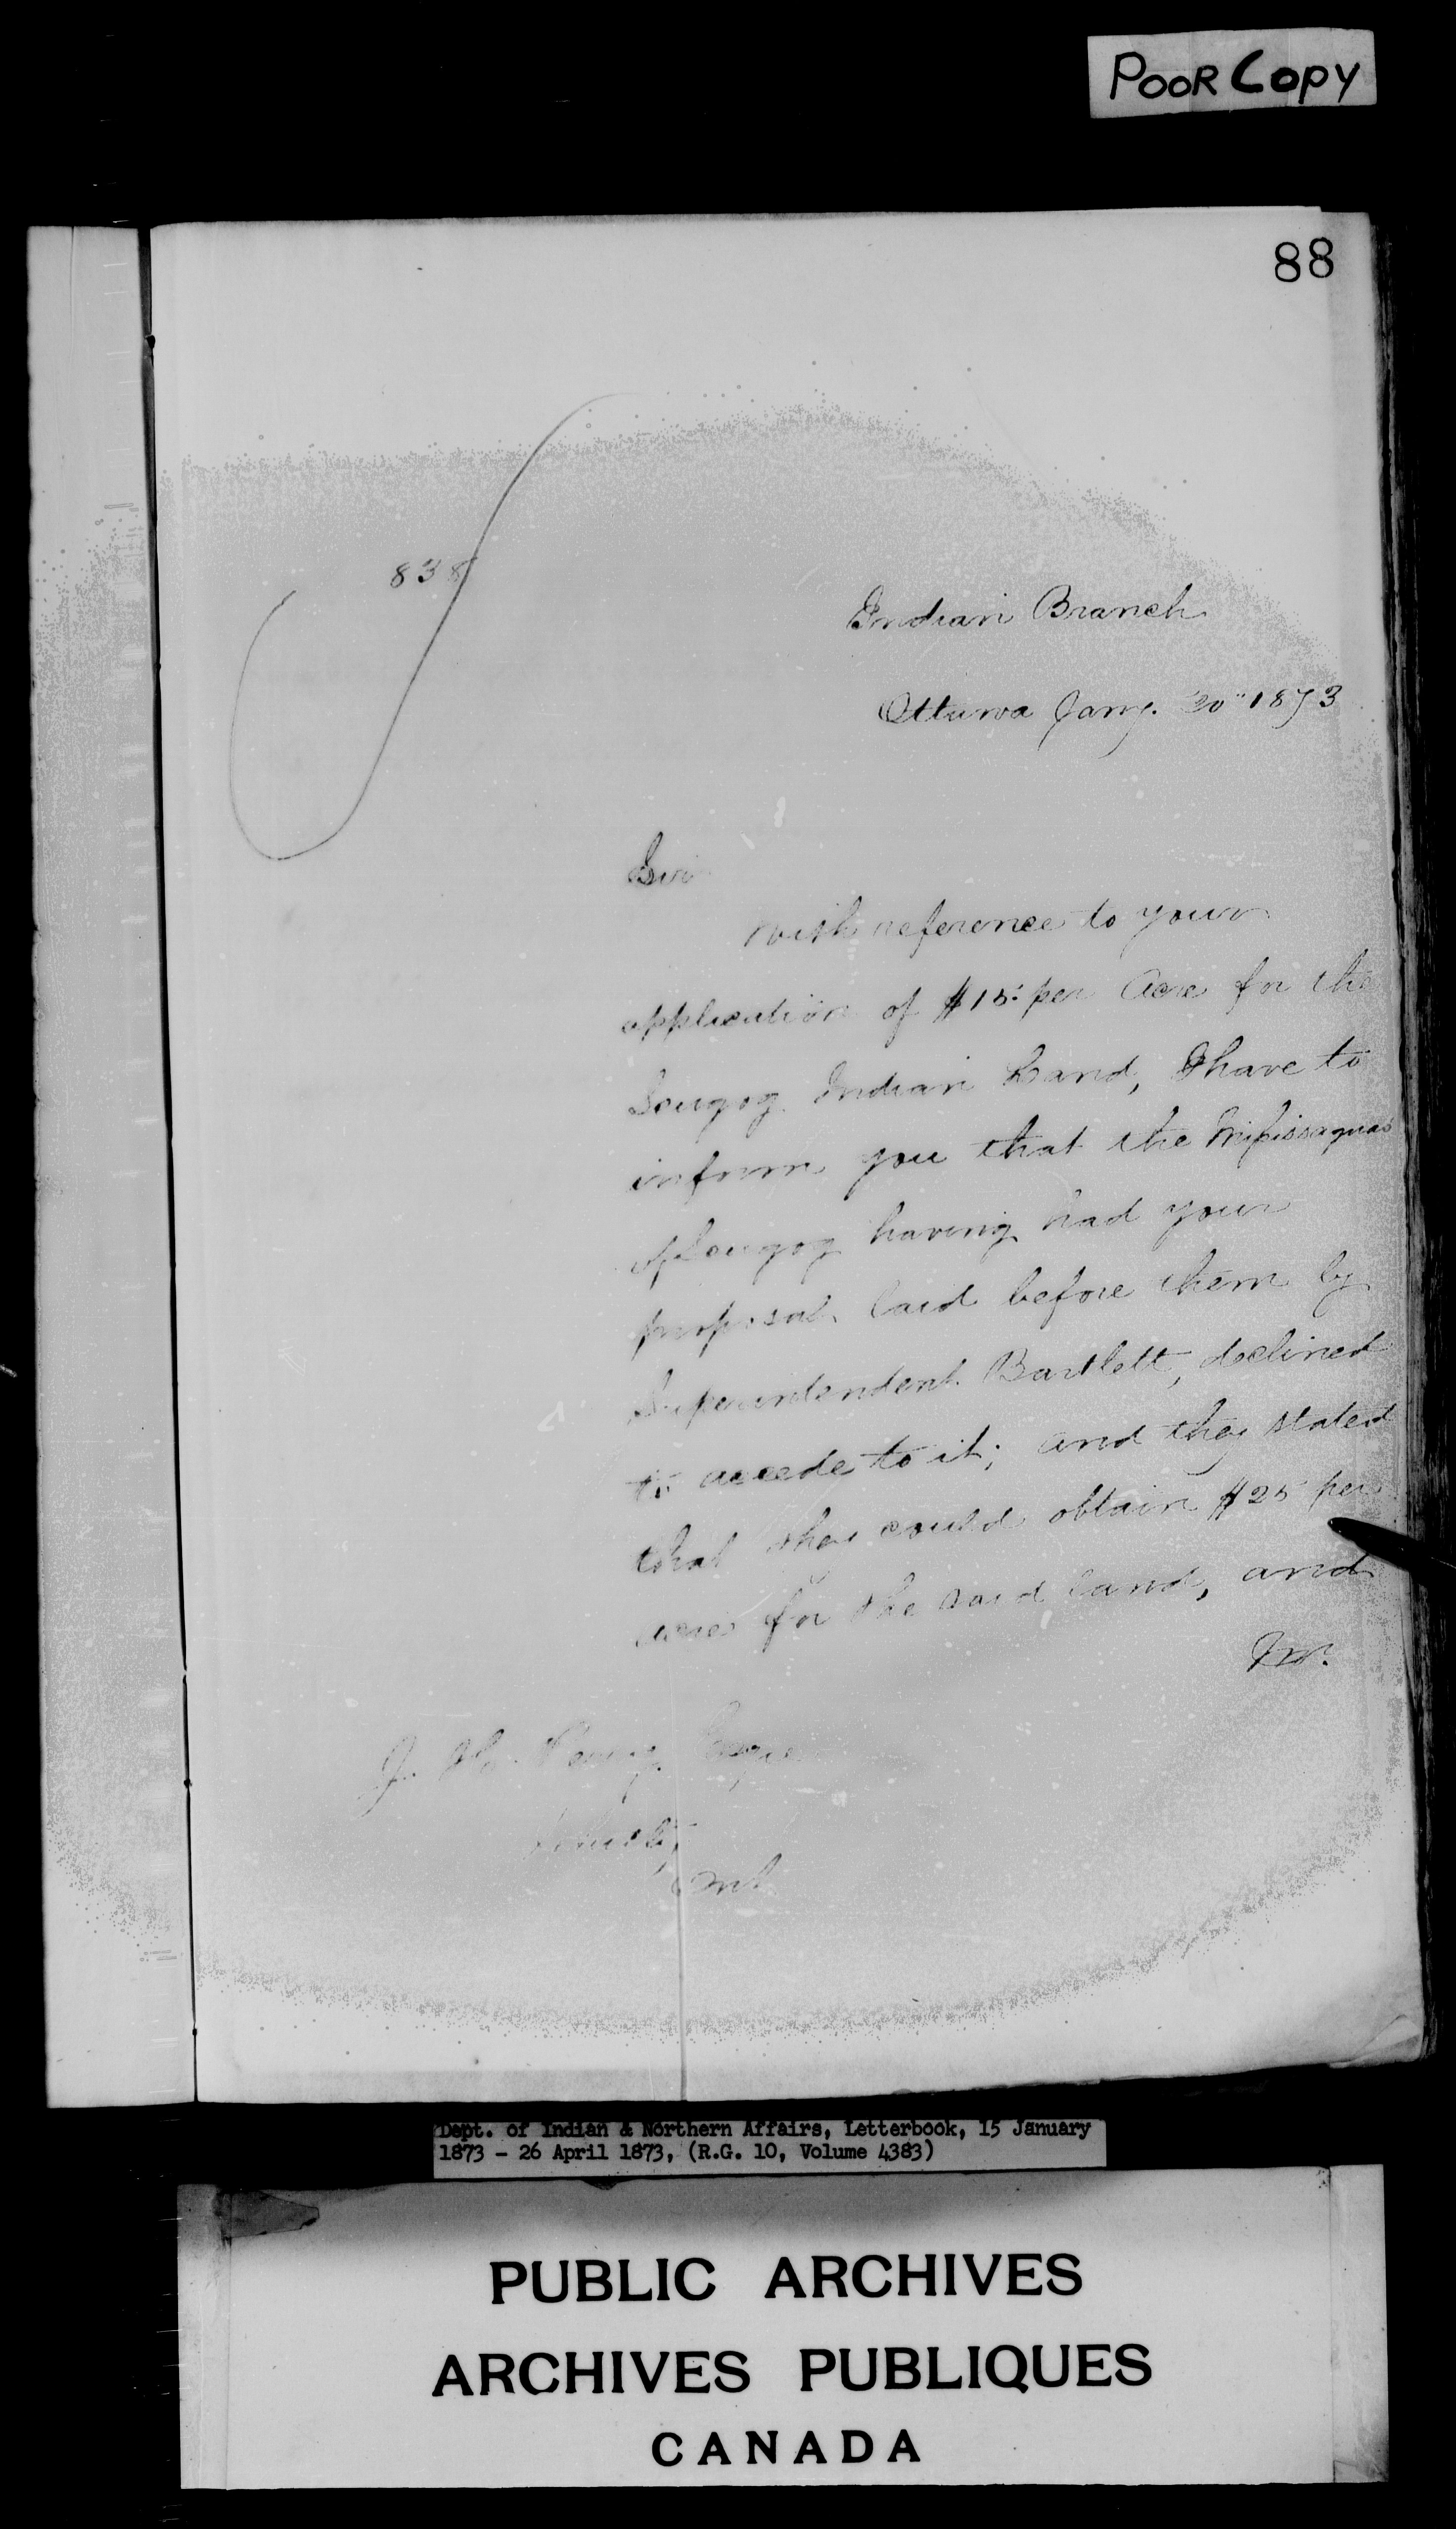 POOR COPY
88
838
Indian Branch
Ottawa Jany. 20" 1873
Sir
With reference to your
application of $15 per Acre for the
Scugog Indian Land, I have to
inform you that the Mississaguas
of Scugog having had your
proposal laid before them by
Superintendent Bartlett, declined
to accede to it; and they stated
that they could obtain $25 per
acre for the said land, and
J. Perry Esqre
Whitby
Ont
Dept. of Indian & Northern Affairs, Letterbook, 15 January
1873 - 26 April 1873, (R.G. 10, Volume 4383)
PUBLIC ARCHIVES
ARCHIVES PUBLIQUES
CANADA